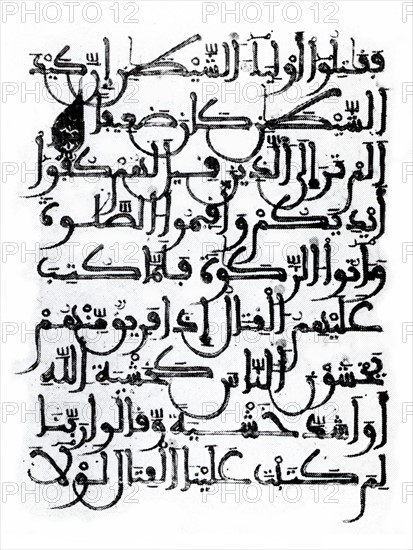 فقتلوا أوليا الشيطن إن كيد
الشيطن كان ضعيفا
ألم تر إلى الذين قيل لهم كفوا
أيديكم وأقيموا الصلوة
وءاتوا الزكوة فلما كتب
عليهم القتال إذا فريق منهم
يخشون الناس كخشية الله
أو أشد خشية وقالوا ربنا
لم كتبت علينا القتال لولا
PHOTO 12